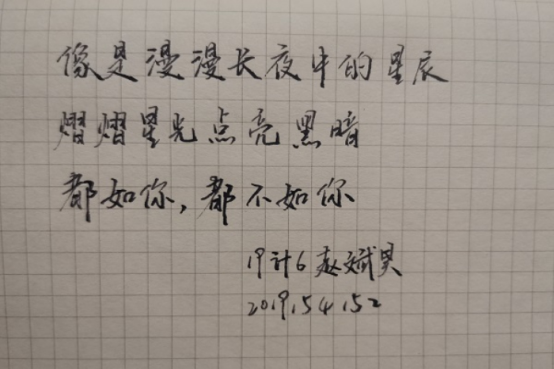 像是漫漫长夜中的星辰
熠熠星光点亮黑暗
都如你,都不如你
19计6 赵斌昊
2019.54.152